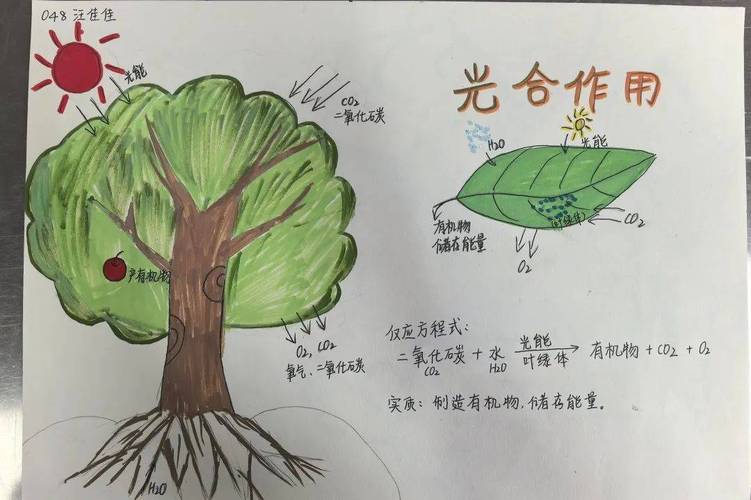 048 汪佳佳
光能
CO₂
二氧化碳
产有机物
O₂, CO₂
氧气、二氧化碳
H₂O
光合作用
H₂O
光能
有机物
储存能量
(叶绿体)
CO₂
O₂
仅应方程式：
二氧化碳 + 水 光能 叶绿体 → 有机物 + CO₂ + O₂
CO₂ H₂O
实质：制造有机物，储存能量。